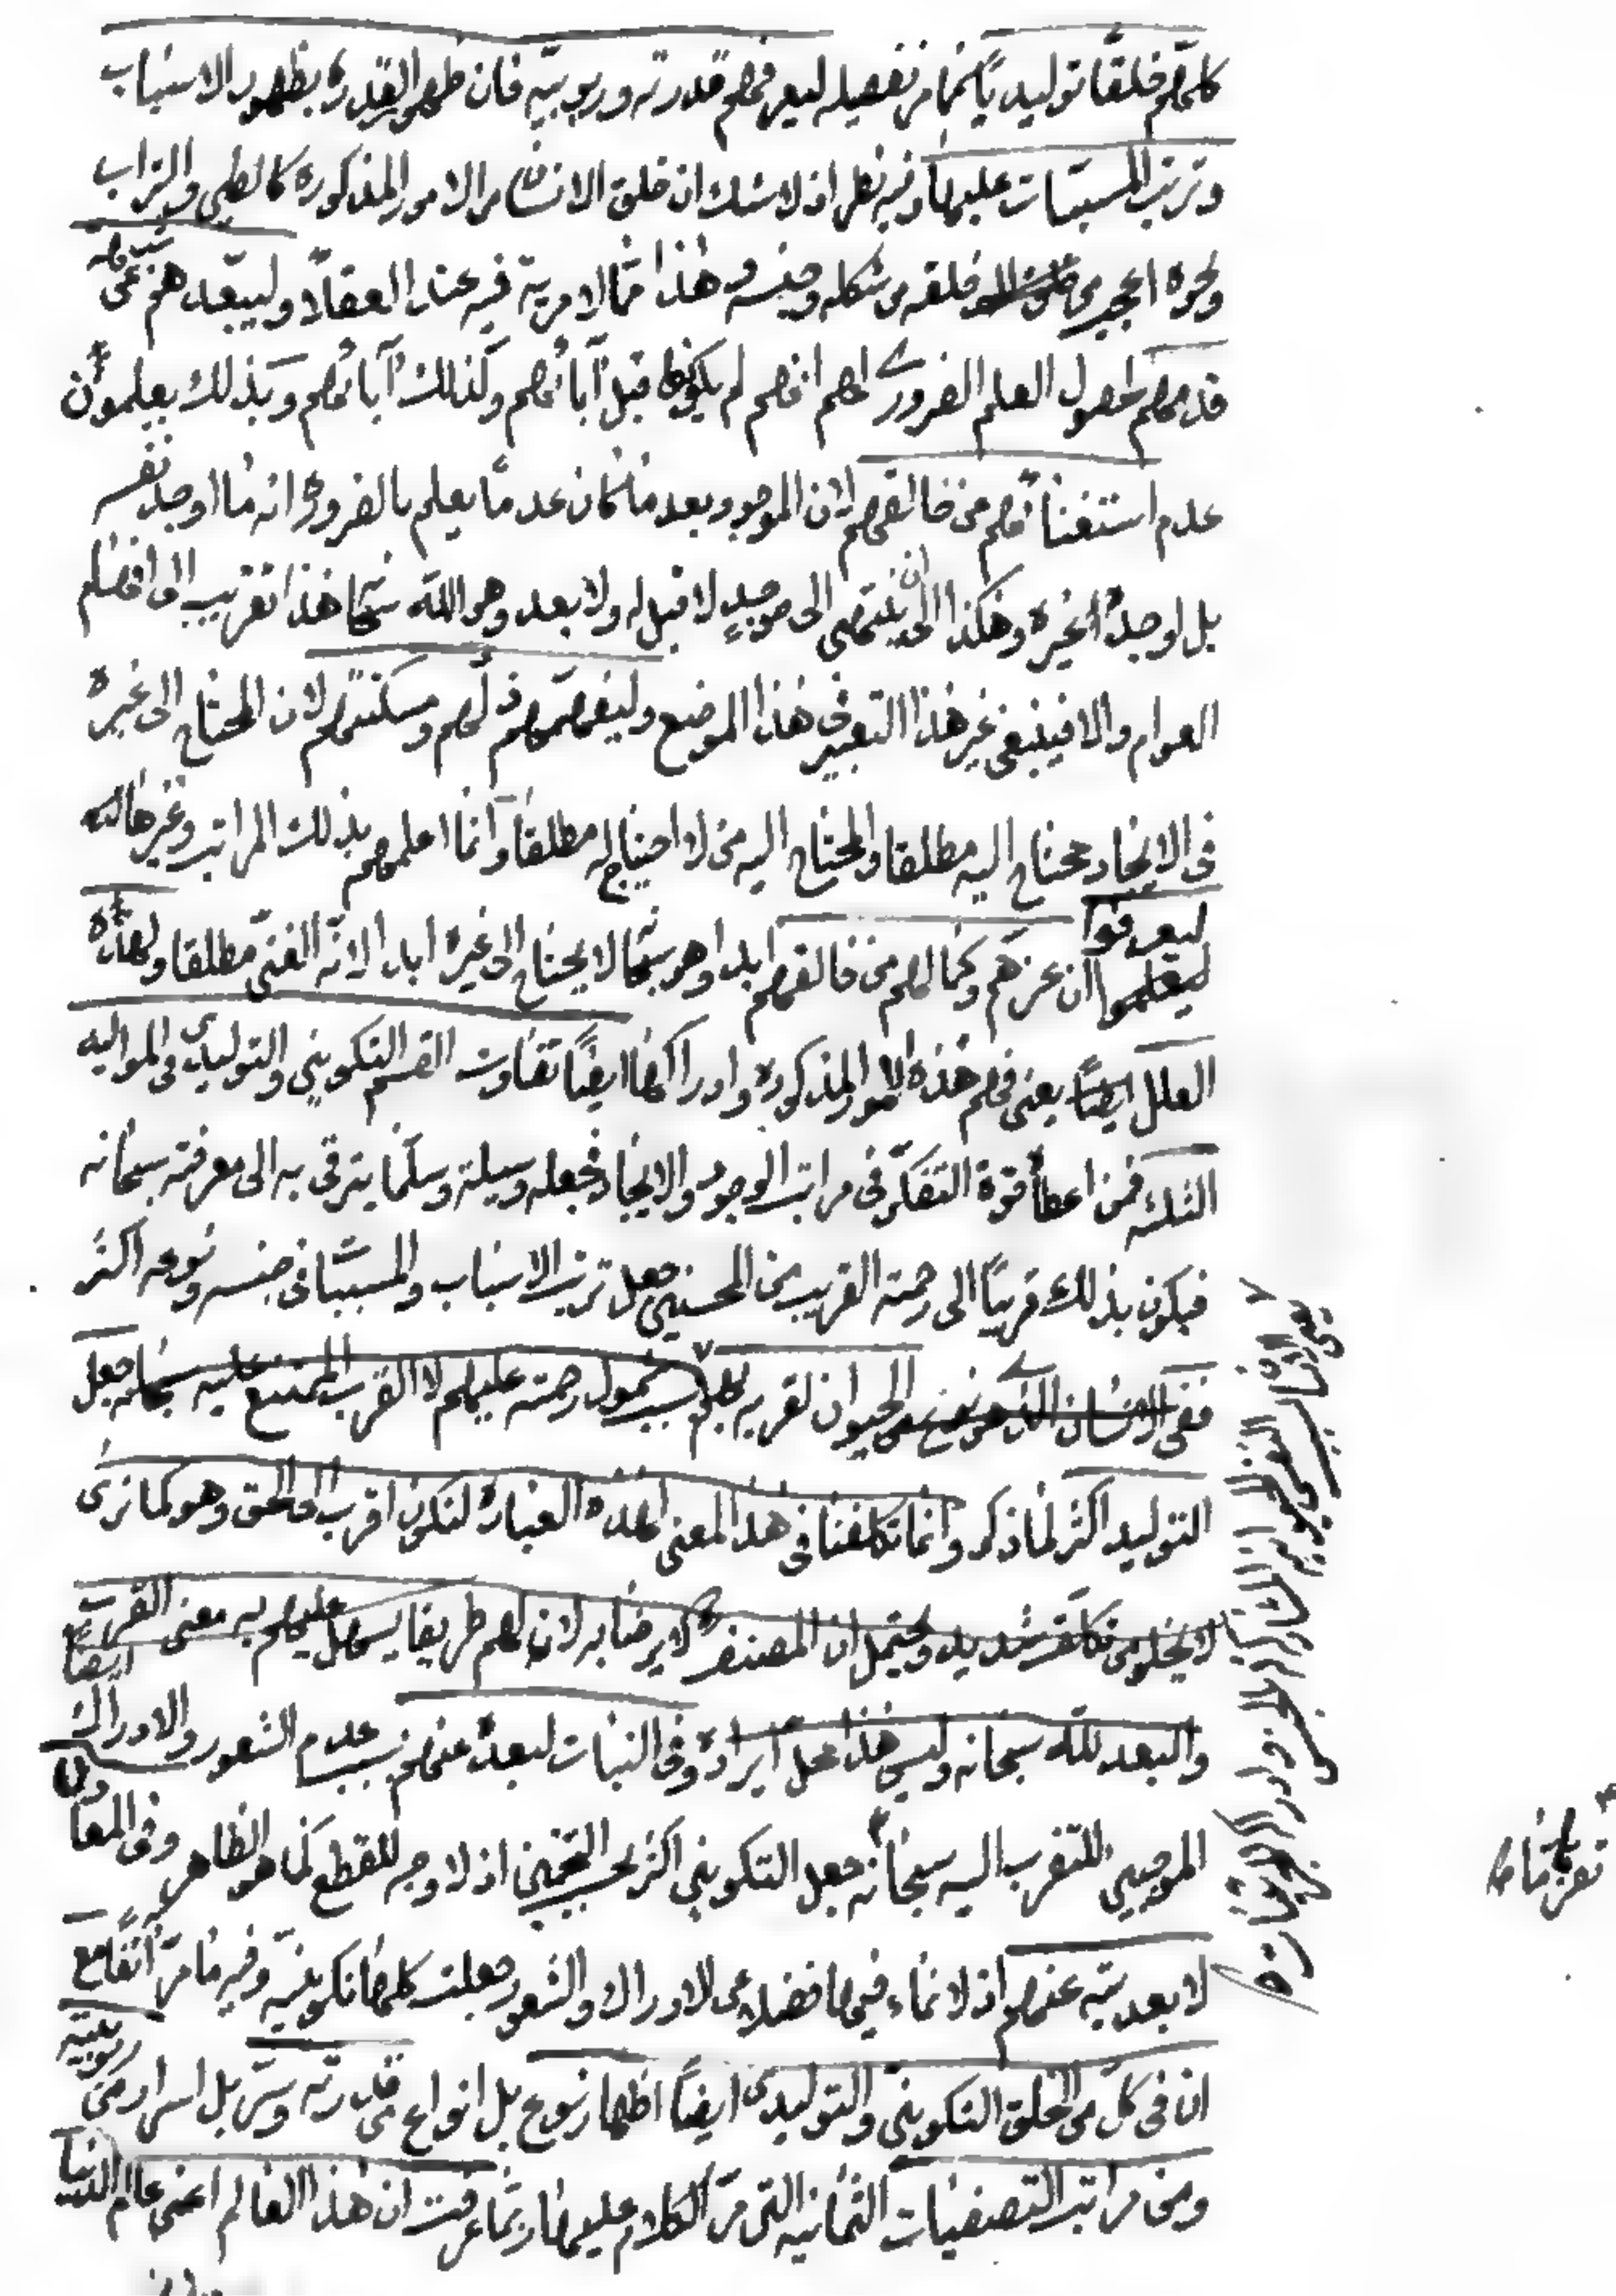 كلهم خلقًا توليديًا كما مر تفصيله ليعرفهم قدرته وربوبيته فان ظهور القدرة بظهور الاسباب
وترتب المسببات عليها وفيه نظر اذ لا شك ان خلق الانسان من الامور المذكورة كالطين والتراب
ونحوه اعجب من خلقه من شكله وجنسه وهذا مما لا مرية فيه عند العقلاء وليبعدهم عن
قدمهم لحصول العلم الضروري لهم انهم لم يكونوا قبل آبائهم وكذلك آبائهم وبذلك يعلمون
عدم استغنائهم من خالقهم لان الموجود بعد ما كان عدمًا يعلم بالضرورة انه ما اوجد نفسه
بل اوجده غيره وهكذا الى ان ينتهى الى موجد لا قبل له ولا بعد وهو الله سبحانه هذا تقريب الى افهام
العوام والا فينبغى غير هذا التعبير فى هذا الموضع وليفهمهم ذلهم ومسكنتهم لان المحتاج الى غيره
فى الايجاد محتاج اليه مطلقا والمحتاج اليه من لا احتياج له مطلقا وانما اعلمهم بذلك المراتب وغيرها
ليعرفوا
ليعلموا ان عزهم وكمالهم من خالقهم ابدا وهو سبحانه لا يحتاج الى غيره ابدا لانه الغنى مطلقا ولهذه
العلل ايضًا يعنى فهم هذه الامور المذكورة وادراكها ايضًا تفاوت القسم التكوينى والتوليدى فى المواليد
الثلثه فمن اعطاه قوة التفكر فى مراتب الوجود والايجاد فجعله وسيلة وسلما يترقى به الى معرفته سبحانه
فيكون بذلك قريبًا الى رحمته القريب من المحسنين جعل ترتب الاسباب والمسببات فى جنسه ونوعه اكثر
ففى الحيوان لقربه بسبب شمول رحمته عليهم لا القرب الممتنع عليه سبحانه جعل
التوليد اكثر لما ذكر وانما تكلفنا فى هذا المعنى لهذه العبارة لتكون اقرب الى الحق وهو كما ترى
لا يخلو من تكلف شديد ويحتمل ان المصنف لا يرضا به لان لهم طريقا يسهل عليهم به معنى القرب
ايضًا
والبعد لله سبحانه وليس هذا محل ايراده وفى النبات لبعده عنهم بسبب عدم الشعور والادراك
الموجبين للتقرب اليه سبحانه جعل التكوينى اكثر بحسب التخمين اذ لا وجه للقطع كما هو الظاهر وفى المعادن
لابعديته عنهم اذ لا نماء فيها فضلا عن الادراك والشعور جعلت كلها تكوينية وفيه ما مر آنفًا مع
ان فى كل من الخلق التكوينى والتوليدى ايضًا اظهار نوع بل انواع من قدرته وسر بل اسرار من ربوبيته
ومن مراتب التصنيفات الثمانيه التى مر الكلام عليها ربما عرفت ان هذا العالم اعنى عالم الدنيا